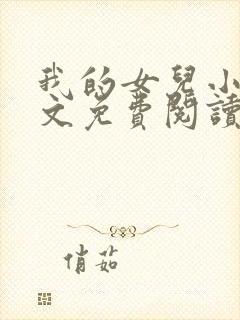 我的女兒小
文免費閱讀
俏茹